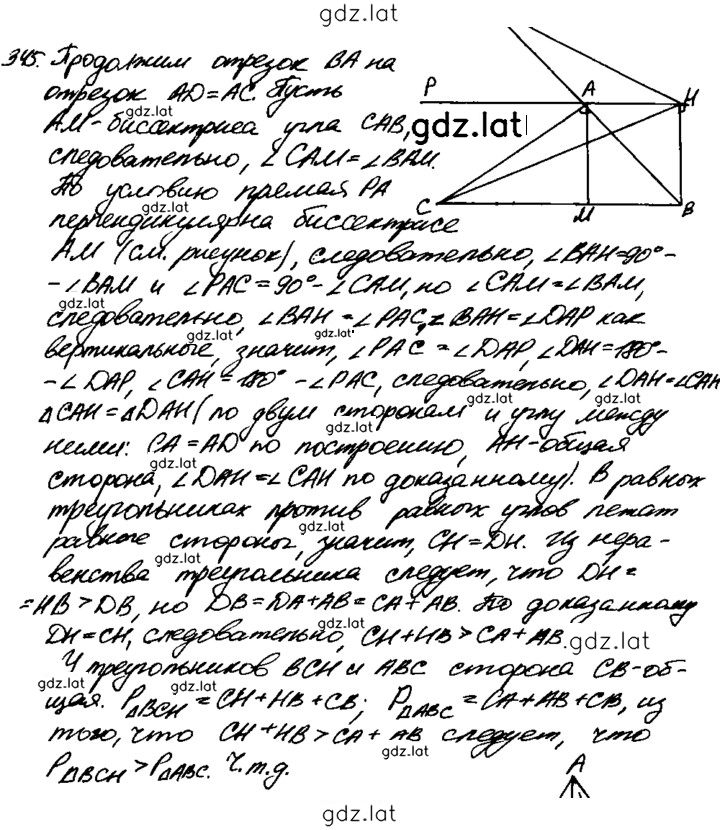 gdz.lat
345. Продолжим отрезок BA на
отрезок AD=AC. Пусть
gdz.lat
AM-биссектриса угла CAB,
gdz.lat
следовательно, ∠CAM=∠BAM.
По условию прямая PA
gdz.lat
перпендикулярна биссектрисе
AM (см. рисунок), следовательно, ∠BAH=90°-
gdz.lat
-∠BAM и ∠PAC=90°-∠CAM, но ∠CAM=∠BAM,
gdz.lat
следовательно, ∠BAH=∠PAC, ∠BAH=∠DAP как
gdz.lat gdz.lat
вертикальные, значит, ∠PAC=∠DAP, ∠DAH=180°-
gdz.lat
-∠DAP, ∠CAH=180°-∠PAC, следовательно, ∠DAH=∠CAH
gdz.lat gdz.lat
△CAH=△DAH (по двум сторонам и углу между
gdz.lat
ними: CA=AD по построению, AH-общая
gdz.lat
сторона, ∠DAH=∠CAH по доказанному). В равных
gdz.lat
треугольниках против равных углов лежат
gdz.lat
равные стороны, значит, CH=DH. Из нера-
gdz.lat
венства треугольника следует, что DH=
gdz.lat
=HB>DB, но DB=DA+AB=CA+AB. По доказанному
gdz.lat
DH=CH, следовательно, CH+HB>CA+AB.
gdz.lat
У треугольников BCH и ABC сторона CB-об-
gdz.lat gdz.lat
щая. P△BCH=CH+HB+CB; P△ABC=CA+AB+CB, из
gdz.lat
того, что CH+HB>CA+AB следует, что
gdz.lat
P△BCH>P△ABC. Ч.т.д.
gdz.lat
P
A
H
gdz.lat
C
M
B
A
gdz.lat